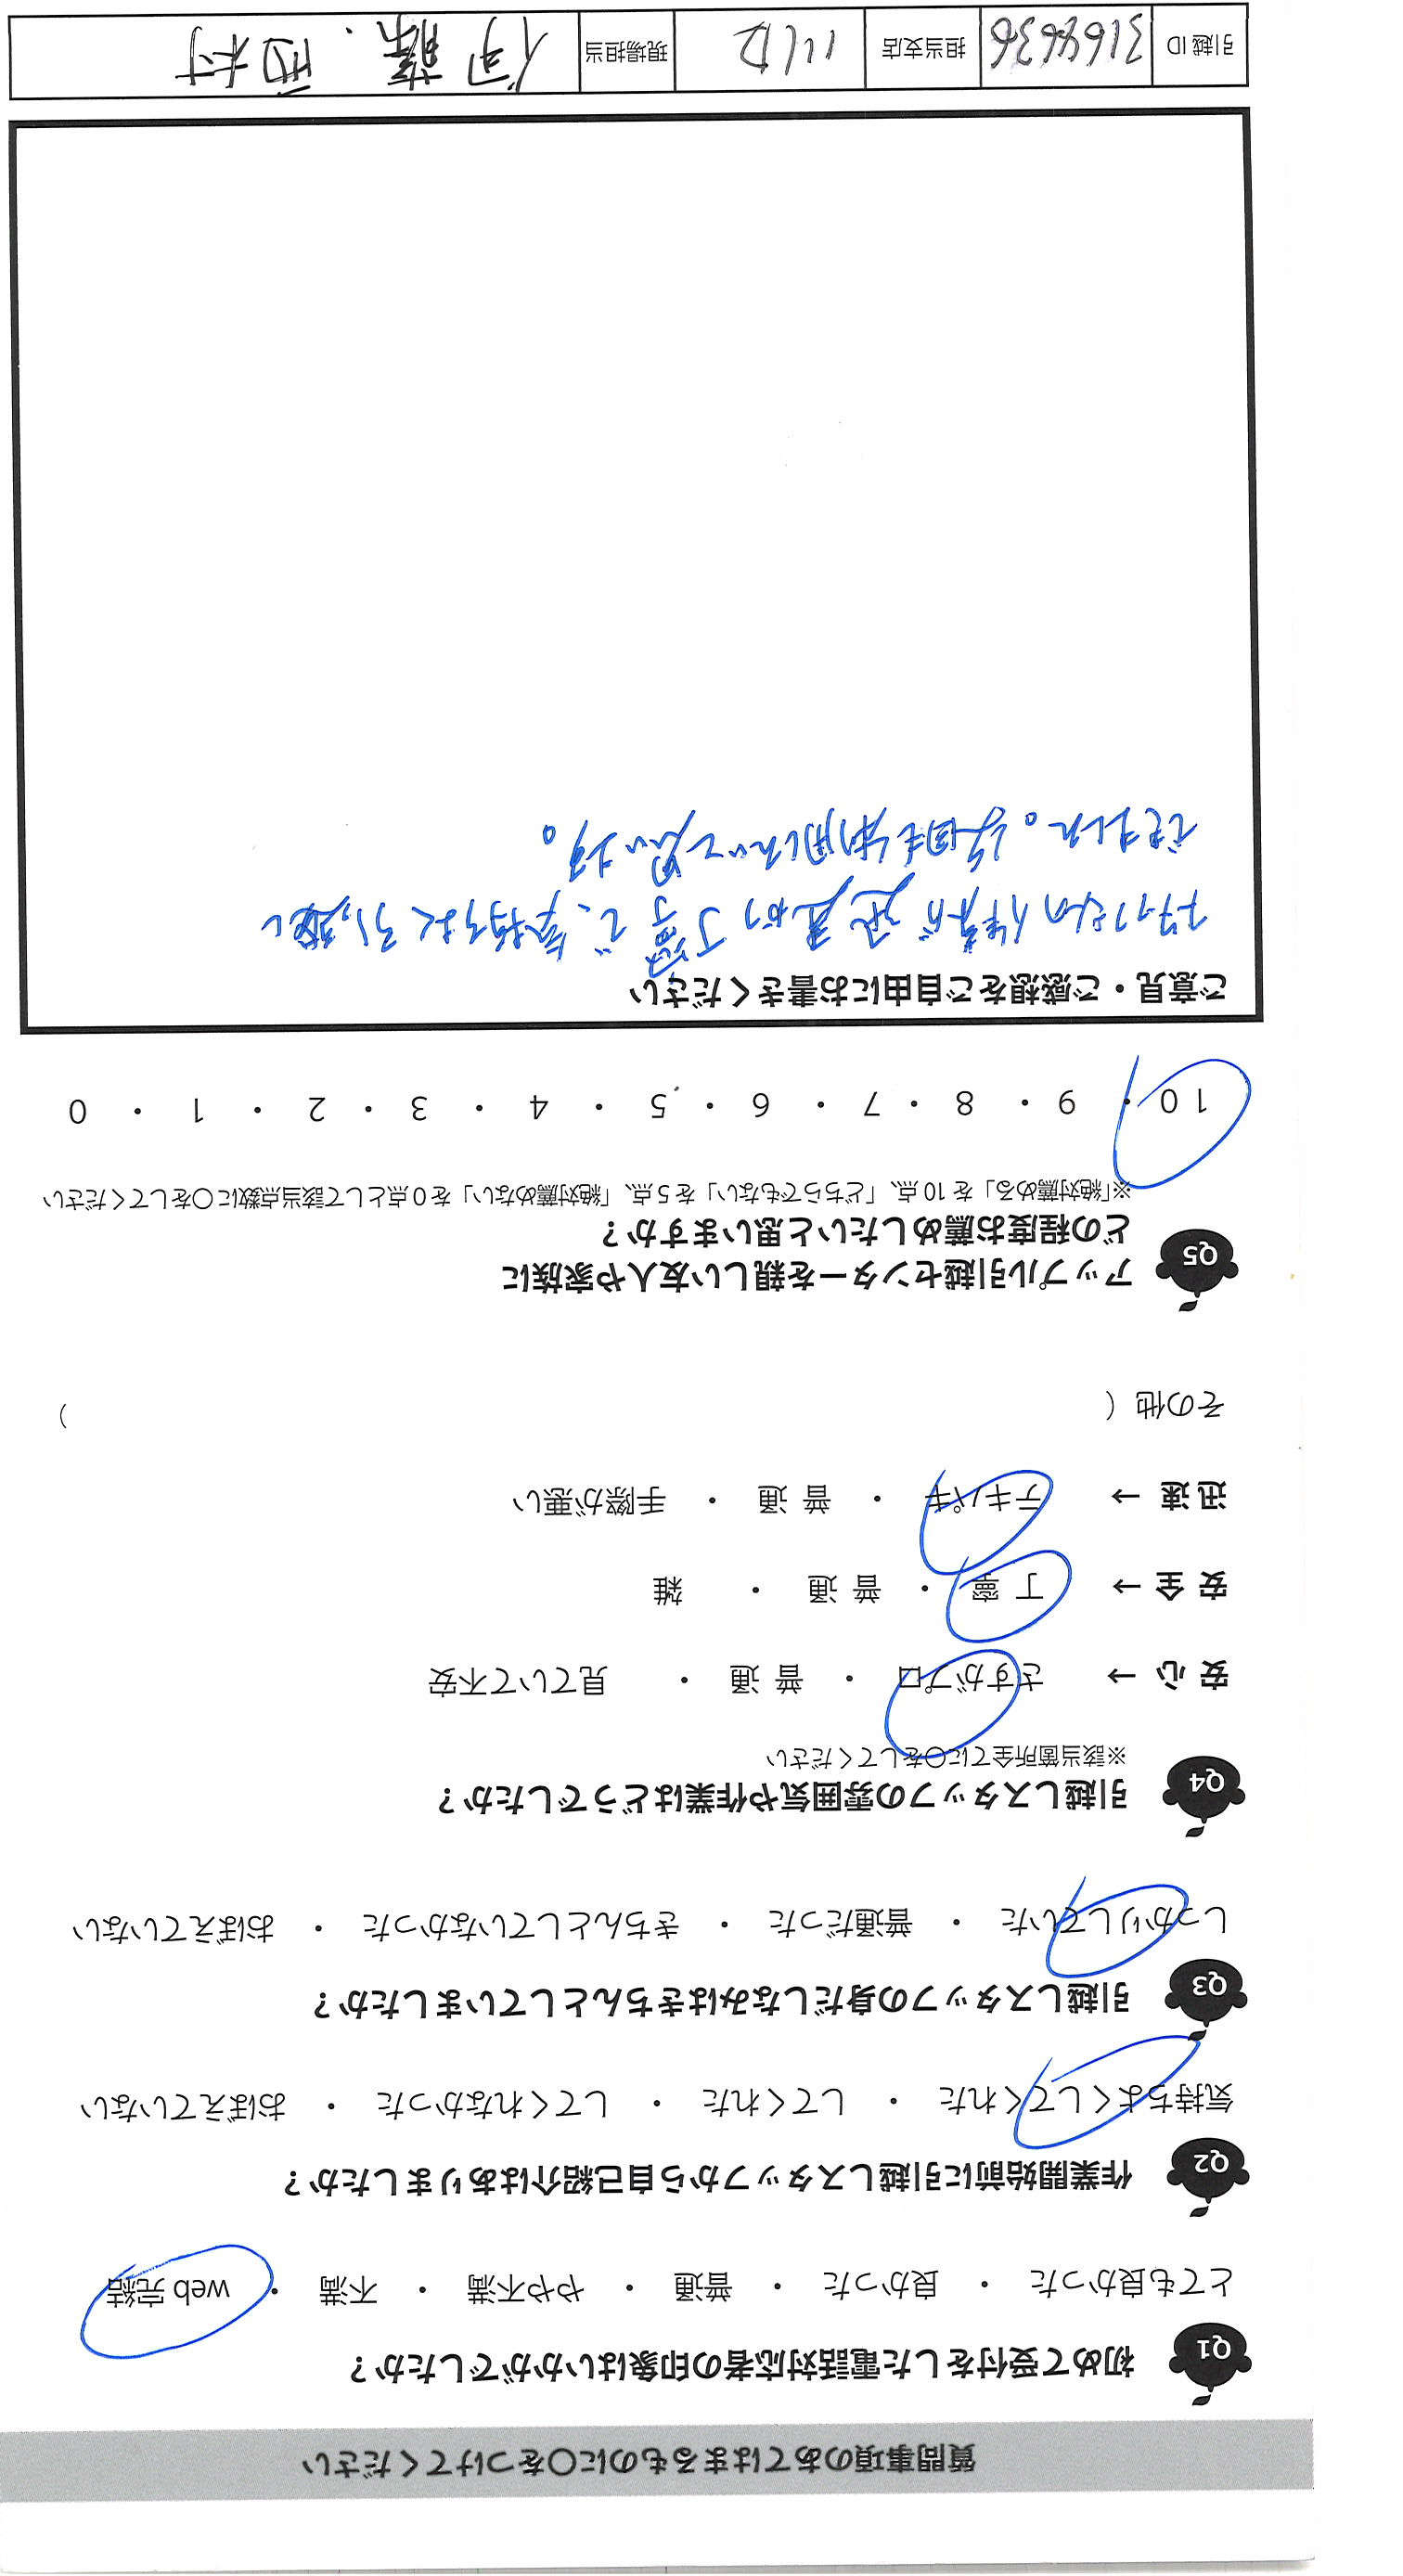 質問事項のあてはまるものに○をつけてください
Q1 初めて受付をした電話対応者の印象はいかがでしたか？
とても良かった ・ 良かった ・ 普通 ・ やや不満 ・ 不満 ・ web 完結
Q2 作業開始前に引越しスタッフから自己紹介はありましたか？
気持ちよくしてくれた ・ してくれた ・ してくれなかった ・ おぼえていない
Q3 引越しスタッフの身だしなみはきちんとしていましたか？
しっかりしていた ・ 普通だった ・ きちんとしていなかった ・ おぼえていない
Q4 引越しスタッフの雰囲気や作業はどうでしたか？
※該当箇所全てに○をしてください
安 心 → さすがプロ ・ 普 通 ・ 見ていて不安
安 全 → 丁 寧 ・ 普 通 ・ 雑
迅 速 → テキパキ ・ 普 通 ・ 手際が悪い
その他（ ）
Q5 アップル引越センターを親しい友人や家族に
どの程度お薦めしたいと思いますか？
※「絶対薦める」を 10 点、「どちらでもない」を 5 点、「絶対薦めない」を 0 点として該当点数に○をしてください
10 ・ 9 ・ 8 ・ 7 ・ 6 ・ 5 ・ 4 ・ 3 ・ 2 ・ 1 ・ 0
ご意見・ご感想をご自由にお書きください
作業が迅速かつ丁寧で、気持ちよく引越し
できました。次回も利用したいと思います。
引越 ID 3164636 担当支店 川口 現場担当 伊藤・西村